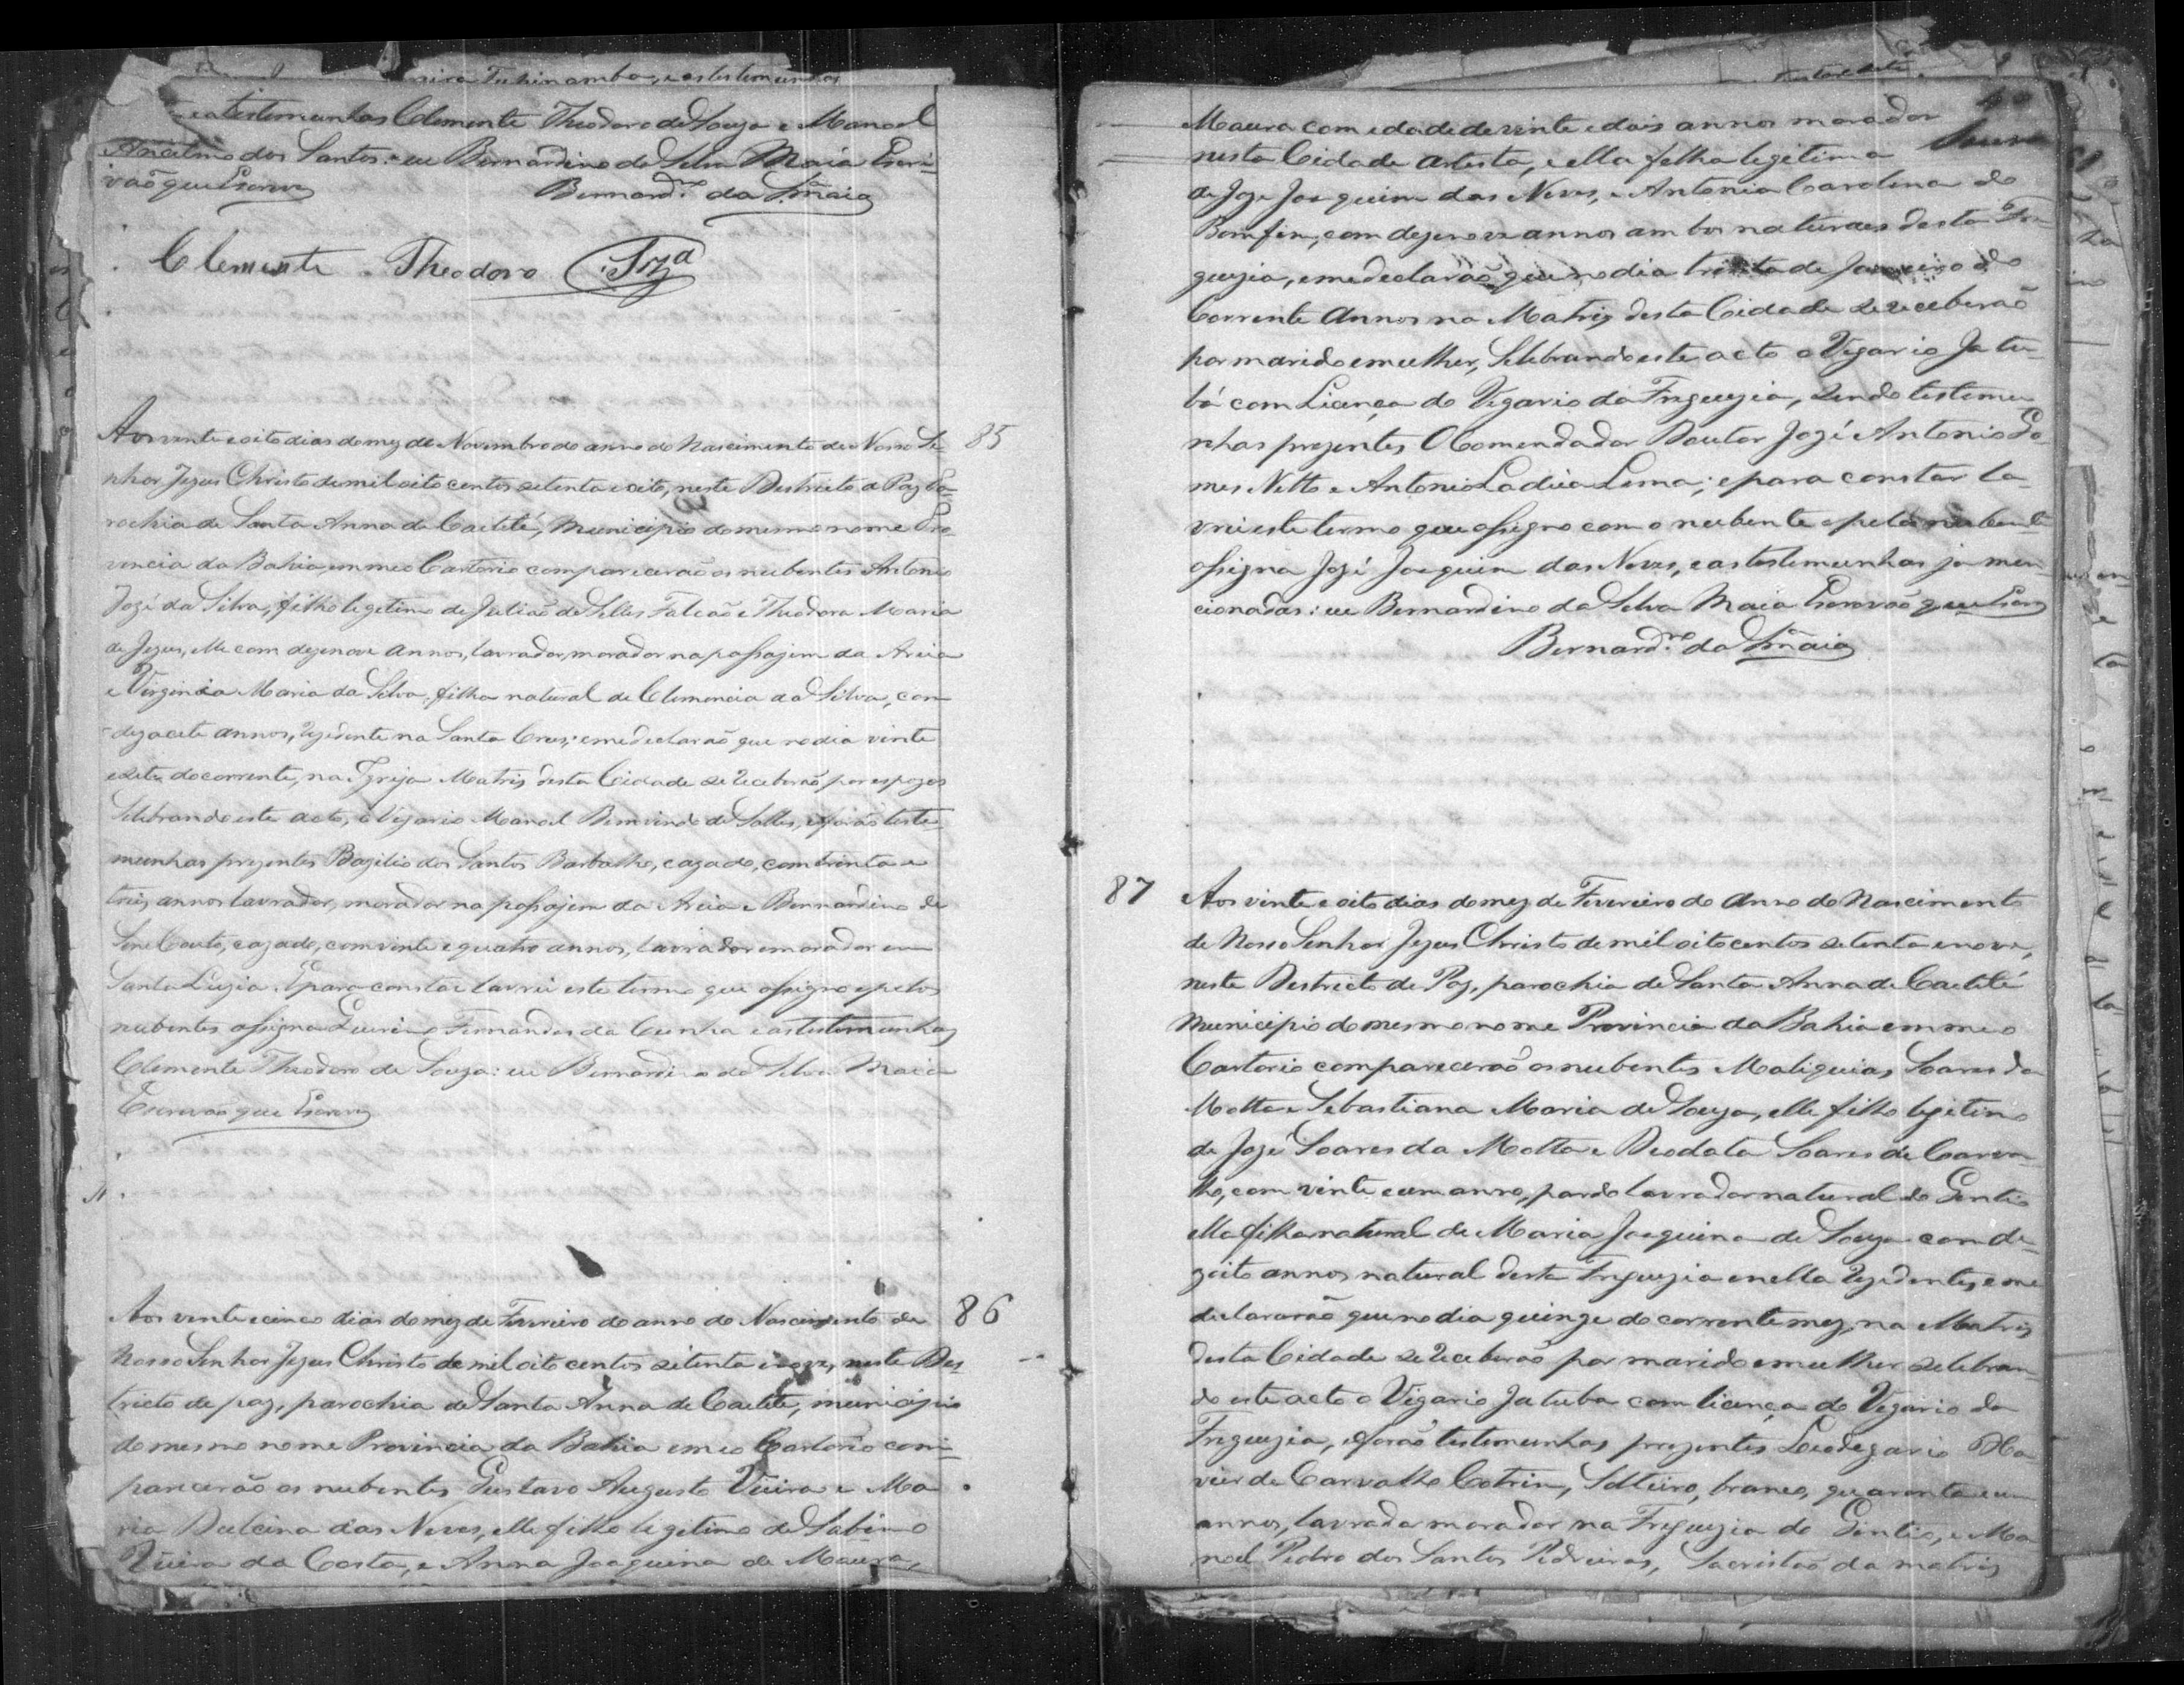 testemunhas Clemente Theodoro de Souza e Manoel
Anselmo dos Santos: eu Bernardino da Silva Maia Escri-
vaõ que Escrevy
Bernardno da S.a Maia
Clemente Theodoro Sza
Aos vinte e oito dias do mez de Novembro do anno do Nascimento de Nosso Se- 85
nhor Jezus Christo de mil oito centos setenta e oito, neste Destricto de Paz Pa-
rochia de Santa Anna de Caeteté, Municipio do mesmo nome Pro-
vincia da Bahia, em meo Cartorio comparecerão os nubentes Antonio
Jozé da Silva, filho legitimo de Julião de Telles Falcaõ e Theodora Maria
de Jezus, elle com dezenove annos, lavrador, morador na passajem da Areia
e Virginia Maria da Silva, filha natural de Clemencia da Silva, com
dezacete annos, rezidente na Santa Crus; e me declararaõ que no dia vinte
e sete do corrente, na Igreja Matriz desta Cidade se receberaõ por espozos
Selebrando este acto, o Vigario Manoel Bemvindo de Salles, e foraõ teste-
munhas prezentes Bazilio dos Santos Barbalho, cazado, com trinta e
tres annos lavrador, morador na passajem da Areia e Bernardino de
Couto, cazado, com vinte e quatro annos, lavrador e morador em
Santa Luzia. E para constar lavrei este termo que assigno e pelos
nubentes assigna Fernandes da Cunha e as testemunhas
Clemente Theodoro de Souza: eu Bernardino da Silva Maia
Escrevaõ que Escrevy
Aos vinte e cinco dias do mez de Fevereiro do anno do Nascimento de 86
Nosso Senhor Jezus Christo de mil oito centos setenta e nove, neste Des-
tricto de paz, parochia de Santa Anna de Caeteté, municipio
do mesmo nome Provincia da Bahia em meo Cartorio com-
parecerão os nubentes Gustavo Augusto Vieira e Ma
ria Dulcina das Neves, elle filho legitimo de Sabino
Vieira da Costa, e Anna Joaquina de Maura,
Maura com edade de vinte e dois annos morador
nesta Cidade artista, e ella filha legitima
de Joze Joaquim das Neves, e Antonia Carolina do
Bomfim, com dezenove annos ambos naturaes desta Fre-
guezia, e me declararaõ que no dia trinta de Janeiro do
Corrente Annos na Matriz desta Cidade se receberaõ
por marido e mulher, Selebrando este acto o Vigario Jatu-
bá com Licença do Vigario da Freguezia, sendo testemu-
nhas prezentes O Comendador Doutor Jozé Antonio Go-
mes Netto e Antonio Ladeia Lima; e para constar la-
vrei este termo que assigno com o nubente e pela nubente
assigna Jozé Joaquim das Neves, e as testemunhas ja men-
cionadas: eu Bernardino da Silva Maia Escrevaõ que Escrevy
Bernardno da S.a Maia
87 Aos vinte e oito dias do mez de Fevereiro do Anno do Nascimento
de Nosso Senhor Jezus Christo de mil oito centos setenta e nove,
neste Destricto de Paz, parochia de Santa Anna de Caeteté
Municipio do mesmo nome Provincia da Bahia em meo
Cartorio comparecerão os nubentes Maliquias Soares da
Motta e Sebastiana Maria de Souza, elle filho legitimo
de Jozé Soares da Motta e Deodata Soares de Carva-
lho, com vinte e um anno, pardo lavrador natural do Gentio
ella filha natural de Maria Joaquina de Souza com de-
zoito annos natural desta Freguezia e nella rezidentes, e me
declararaõ que no dia quinze do corrente mez, na Matriz
desta Cidade se receberaõ por marido e mulher selebran-
do este acto o Vigario Jatuba com licença do Vigario da
Freguezia, e foraõ testemunhas prezentes Leodegario Xa
vier de Carvalho Cotrim, Solteiro, branco, quarenta e um
annos, lavrador morador na Freguezia do Gentio, e Ma
noel Pedro dos Santos Pedreiras, Sacristaõ da matriz